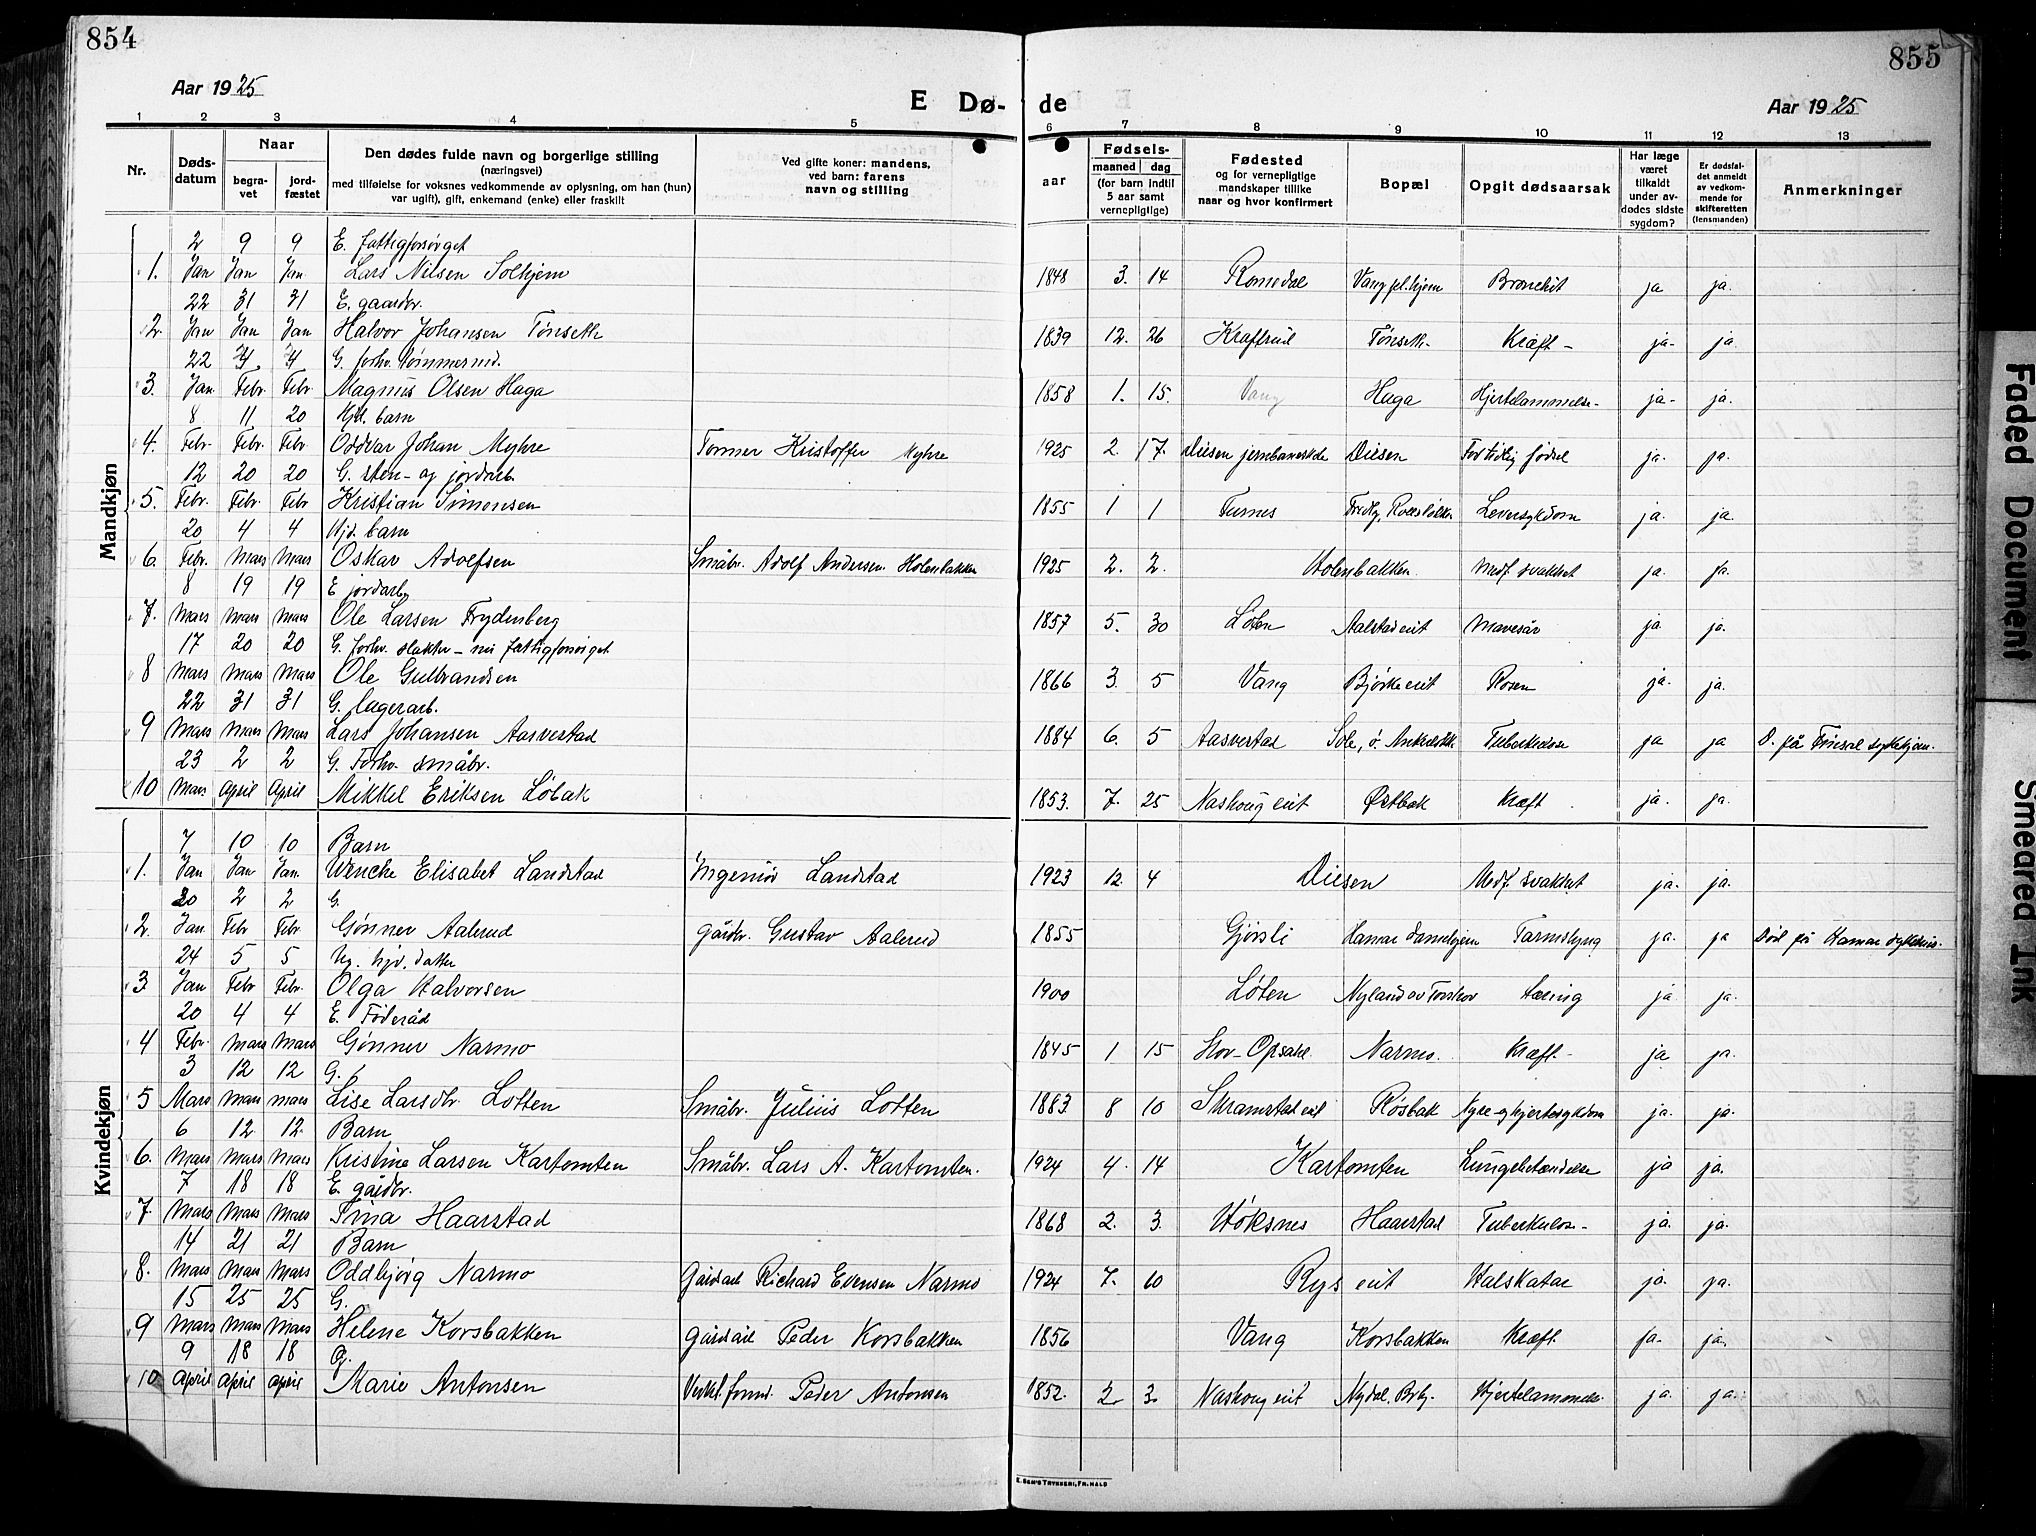 854
855
Aar 1925
E Dø-
de
Aar 1925
1 2 3 4 5 6 7 8 9 10 11 12 13
Nr.
Døds-
datum
Naar
begra-
vet
jord-
fæstet
Den dødes fulde navn og borgerlige stilling
(næringsvei)
med tilføielse for voksnes vedkommende av oplysning, om han (hun)
var ugift), gift, enkemand (enke) eller fraskilt
Ved gifte koner: mandens,
ved barn: farens
navn og stilling
Fødsels-
aar
maaned dag
(for barn indtil
5 aar samt
vernepligtige)
Fødested
og for vernepligtige
mandskaper tillike
naar og hvor konfirmert
Bopæl
Opgit dødsaarsak
Har læge
været
tilkaldt
under av-
dødes sidste
sygdom?
Er dødsfal-
det anmeldt
av vedkom-
mende for
skifteretten
(lensmanden)
Anmerkninger
Mandkjøn
2 9 9 E. fattigforsørget
1. Jan Jan Jan. Lars Nilsen Solhjem 1848 3. 14 Romedal Vang pl.hjem Bronchit ja ja.
22 31 31 E. gaardbr.
2. Jan Jan Jan Halvor Johansen Tønseth 1839 12. 26 Kraftrud Tønseth Kræft - ja- ja.
22 4 4 G. forhv. tømmermd.
3. Jan Febr Febr. Magnus Olsen Haga 1858 1. 15. Vang Haga Hjertelammelse- ja- ja.
8 11 20 Hjd. barn
4. Febr. Febr. Febr. Oddvar Johan Myhre Tømmer Kristoffer Myhre 1925 2. 17. Diesen Diesen For tidlig fødsel ja. ja.
12 20 20 G. sten- og jordarb.
5. Febr. Febr. Febr Kristian Simonsen 1855 1 1 Furnes Leversykdom ja. ja.
20 4 4 Hjd. barn
6. Febr. Mars Mars Oskar Adolfsen Småbr. Adolf Andersen Holenbakken 1925 2. 2. Holenbakken Medf. svakhet ja. ja.
8 19 19 E jordarb
7. Mars Mars Mars Ole Larsen Frydenberg 1857 5. 30 Løten Aalstad eie Mavesår ja ja.
17 20 20 G. forhv. slakter - nu fattigforsørget
8 Mars Mars Mars Ole Gulbrandsen 1866 3. 5 Vang Bjørke eie Rosen ja. ja.
22 31 31 G. lagerarb.
9 Mars Mars Mars Lars Johansen Aasvestad 1884 6. 5 Aasvestad Tuberkulose ja ja D. på sykehjem.
23 2 2 G. Forhv. småbr.
10 Mars April April Mikkel Eriksen Løbak 1853. 7. 25 Naskoug eie Østbak Kræft. ja. ja.
Kvindekjøn
7 10 10 Barn
1. Jan Jan Jan. Wenche Elisabet Landstad Ingeniør Landstad 1923 12. 4 Diesen Medf. svakhet ja. ja.
20 2 2 G.
2. Jan Febr Febr Gønner Aalerud gårdbr. Gustav Aalerud 1855 Gjørsli Hamar Tarmslyng ja. ja Død på Hamar sykehus.
24 5 5 Ug. hjv. datter
3 Jan Febr Febr. Olga Halvorsen 1900 Løten Nyland av Torshov Tæring ja ja.
20 4 4 E. Føderåd
4 Febr. Mars Mars Gønner Narmo 1845 1 15 Hov-Opsahl Narmo. Kræft- ja ja.
3 12 12 G.
5 Mars Mars Mars Lise Larsdtr. Lotten Småbr. Julius Lotten 1883. 8 10 Skramstad eie Røsbak Nyre- og hjertesykdom ja. ja.
6 12 12. Barn
6. Mars Mars Mars Kristine Larsen Kartomten Småbr. Lars A. Kartomten. 1924 4. 14 Kartomten Lungebetændelse ja ja.
7 18 18 E. gårdbr.
7. Mars Mars Mars Sina Haarstad 1868 2. 3. Høksnes Haarstad Tuberkulose- ja. ja.
14 21 21 Barn
8. Mars Mars Mars Oddbjørg Narmo Gårdarb Richard Evensen Narmo 1924 7. 10 Rys eie Halskatar ja. ja.
15 25 25 G.
9 Mars Mars Mars Helene Korsbakken Gårdarb Peder Korsbakken 1856 Vang Korsbakken Kræft. ja. ja.
9 18 18 G.
10 April April April Marie Antonsen Verkst.formd. Peder Antonsen 1852. 2. 3. Naskoug eie Nydal, Brby. Hjertelammelse. ja. ja.
E. Sem's Trykkeri, Fr.hald
Faded Document
Smeared Ink